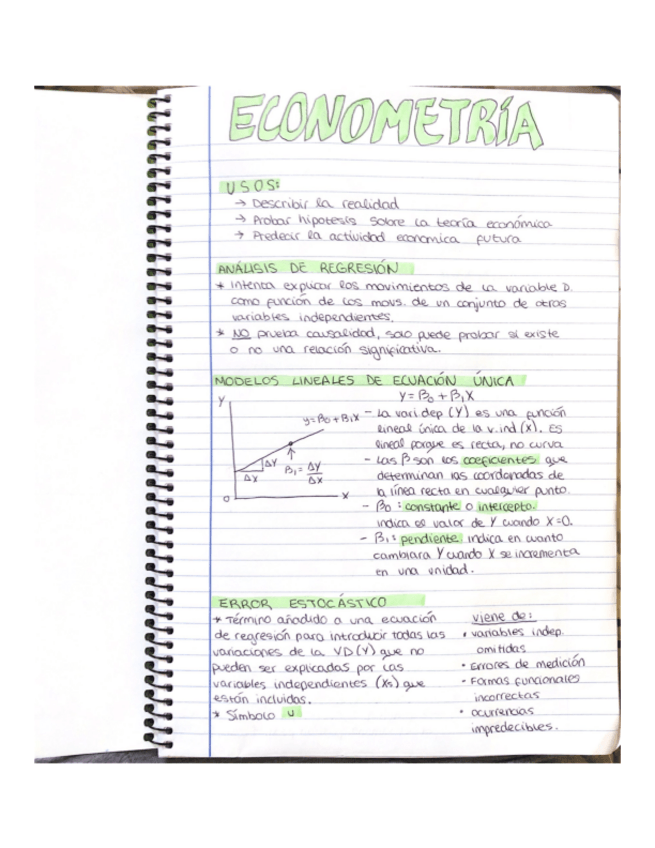 ECONOMETRÍA
USOS:
→ Describir la realidad
→ Probar hipotesis sobre la teoría económica
→ Predecir la actividad economica futura
ANÁLISIS DE REGRESIÓN
* Intenta explicar los movimientos de la variable D.
como función de los movs. de un conjunto de otros
variables independientes.
* NO prueba causalidad, solo puede probar si existe
o no una relación significativa.
MODELOS LINEALES DE ECUACIÓN ÚNICA
Y = β₀ + β₁X
Y
y = β₀ + β₁X
ΔY
ΔX
β₁ = ΔY/ΔX
0
X
- La vari dep (Y) es una función
lineal única de la v.ind (X). Es
lineal porque es recta, no curva
- Las β son los coeficientes que
determinan las coordenadas de
la línea recta en cualquier punto.
- β₀ : constante o intercepto.
indica el valor de Y cuando X=0.
- β₁ : pendiente. indica en cuanto
cambiara Y cuando X se incrementa
en una unidad.
ERROR ESTOCÁSTICO
* Término añadido a una ecuación
de regresión para introducir todas las
variaciones de la VD (Y) que no
pueden ser explicadas por las
variables independientes (Xs) que
están incluidas.
* Símbolo u
viene de:
• variables indep.
omitidas
• Errores de medición
- Formas funcionales
incorrectas
• ocurrencias
impredecibles.